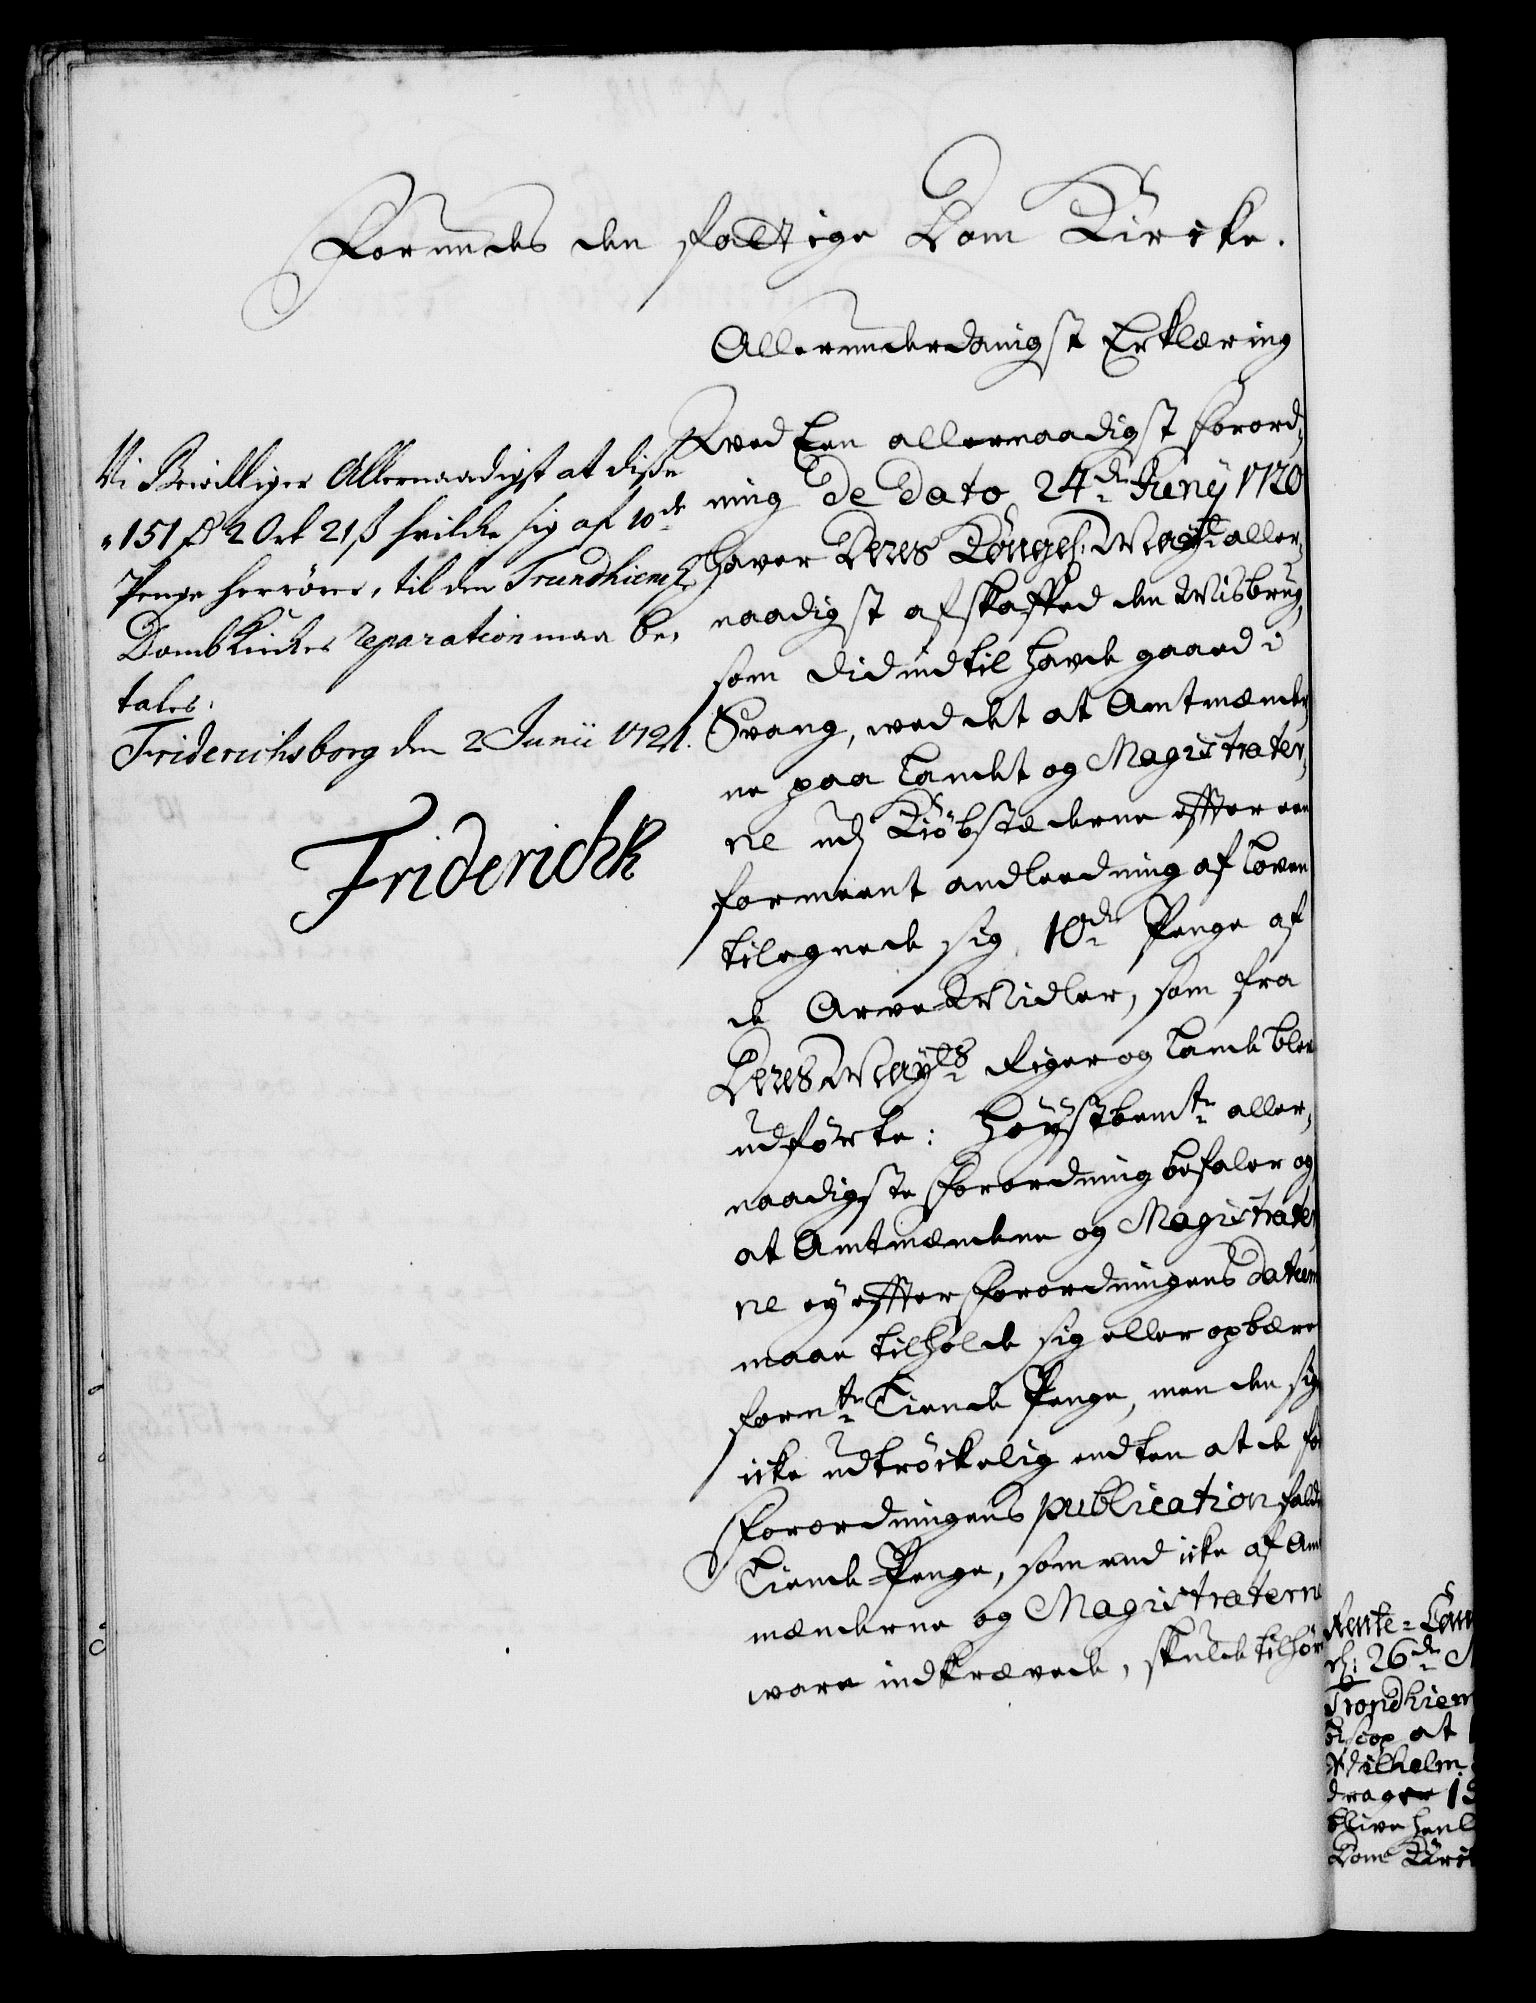 forundes den fattige Dom Kircke.
Allerunderdanigst Erklæring
Vi Bevilliger Allernaadigst at disse
151 rd 2 Ort 21 ß hvilcke sig af 10de
Penge herrører, til den Trundhiemske
Domb Kirckes reparation maa be,
tales.
Friderichsborg den 2 Junii 1721.
Friderich R
Wed Een allernaadigst forord,
ning de dato 24de Juny 1720
haver Deres Kongel. Mayt. aller,
naadigst afskaffed den Misbrug,
som did indtil havde gaaed i
Svang, wed det at Amtmænder,
ne paa Landet og Magistrater,
ne udj Kiöbstæderne effter een
formeent andleedning af Loven
tilegnede sig 10de Penge af
de Arve-Midler, som fra
Deres Mayts Riger og Lande blev
udförte: Höystbemte aller,
naadigste forordning befaler og
at Amtmændene og Magistrater
ne ey effter forordningens datum
maae tilholde sig eller opbære
formte Tiende Penge, men den sig
icke udtröckelig endten at de for
forordningens publication faldne
Tiende-Penge, som end icke af Amt
mænderne og Magistraterne
ware indkrævede, skulde tilhöre
Rente-Cam
d: 26de
Trondhiem
Biscop at
Wilhelm
drager 15
blive henl
Dom Kirck